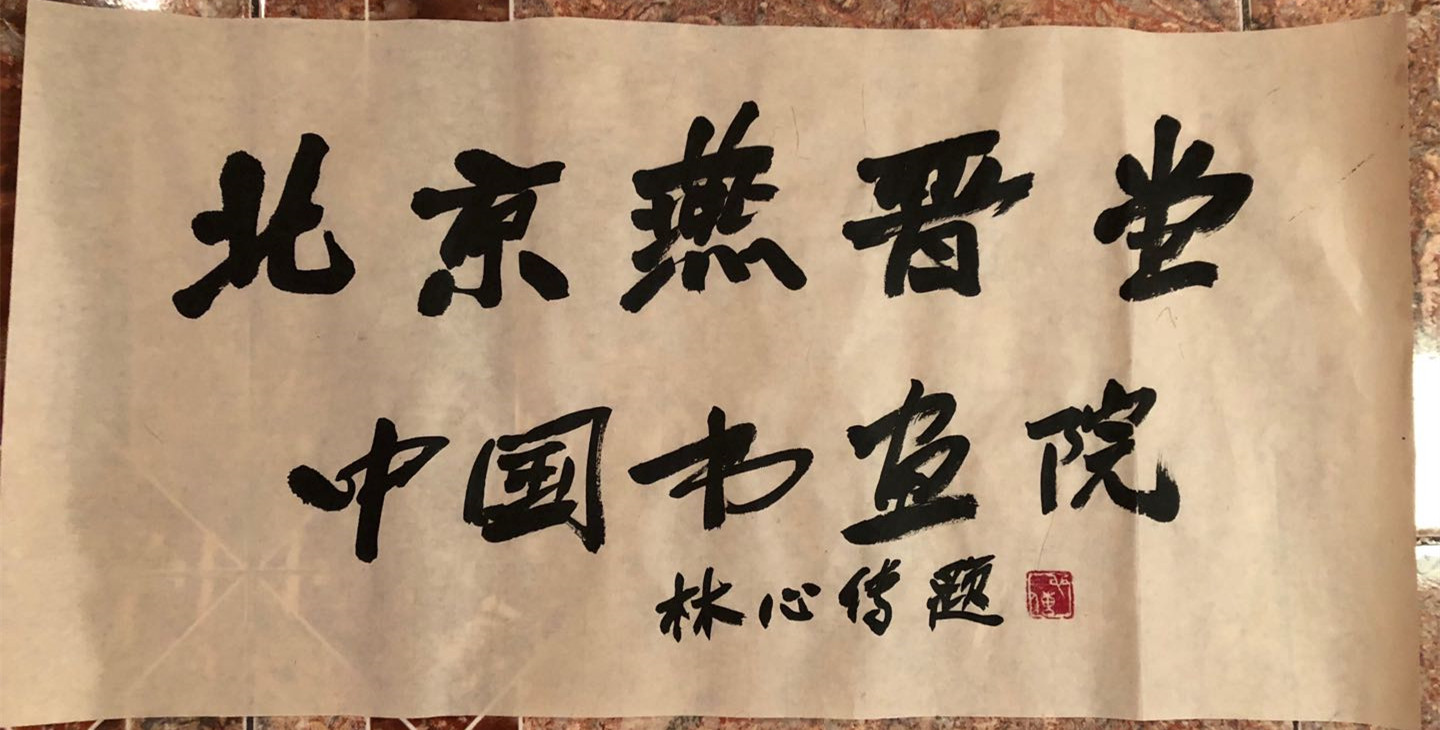 北京燕晋堂
中国书画院
林心传题
心传